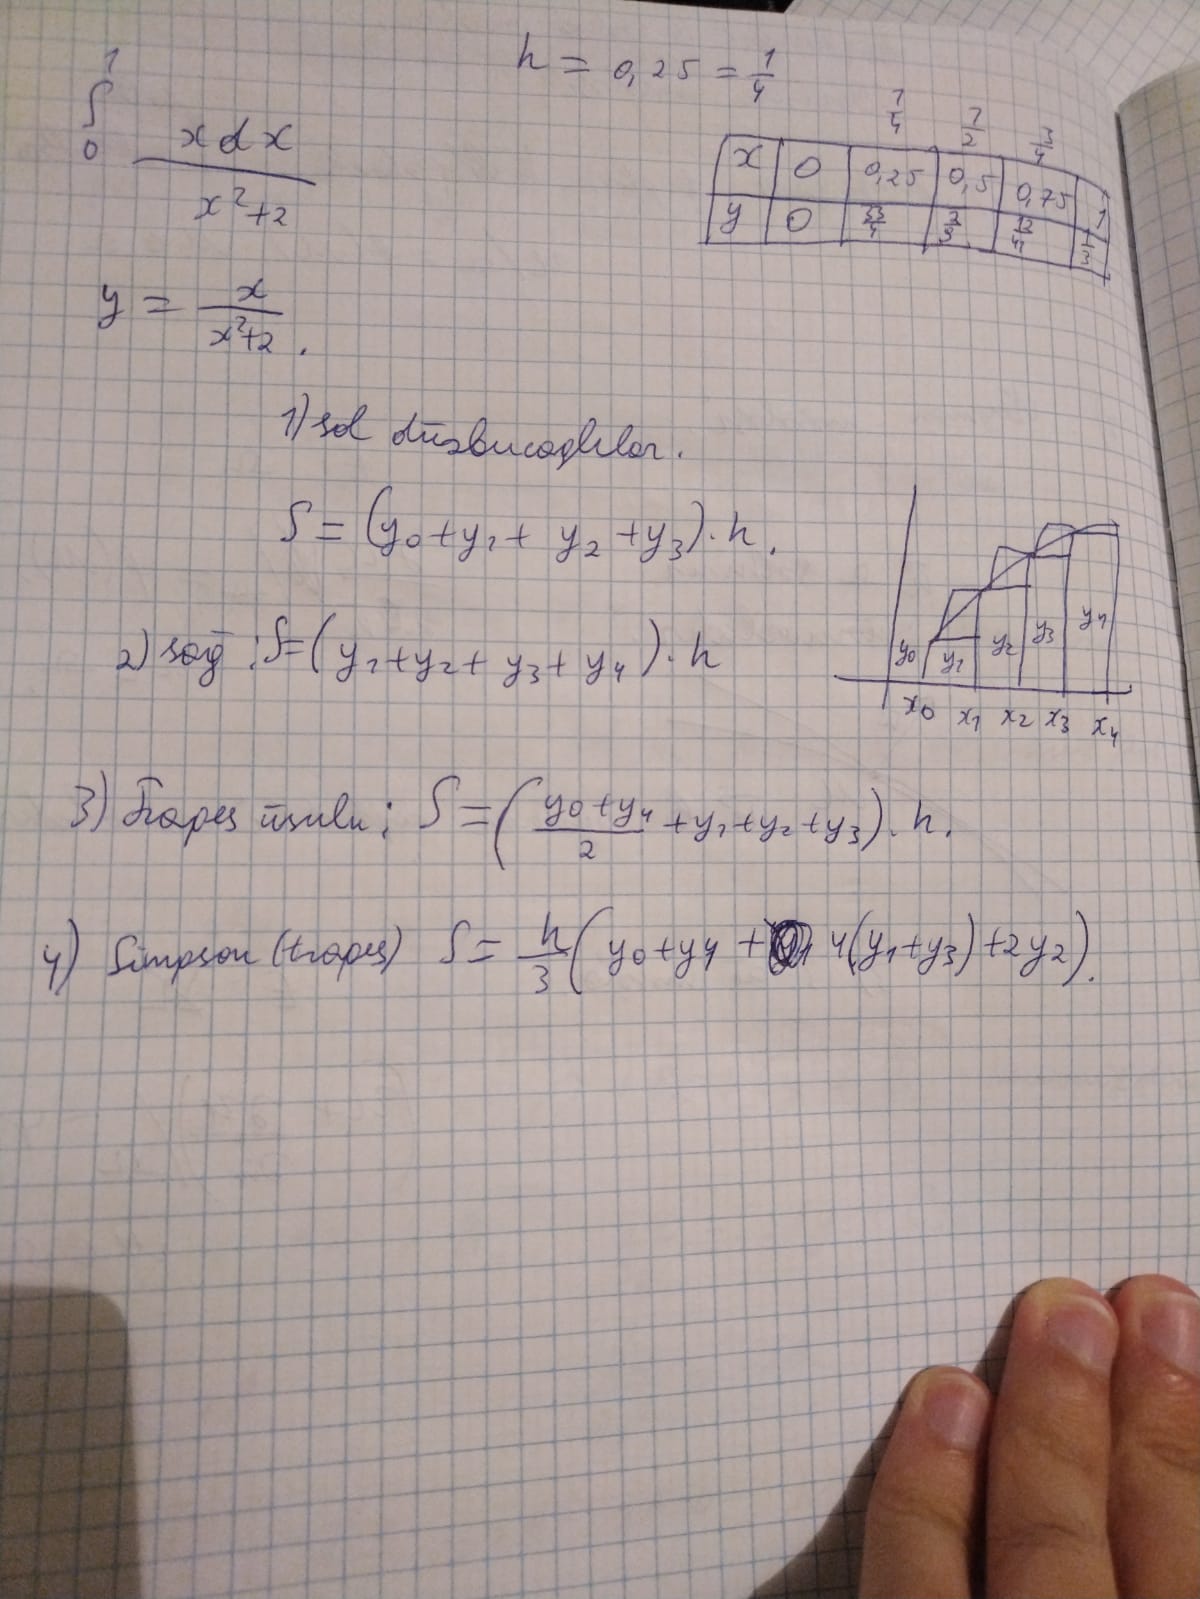 ∫₀¹ x dx / (x²+2)
h = 0,25 = 1/4
1/4 1/2 3/4
x 0 0,25 0,5 0,75 1
y 0 33/4 2/9 12/41 1/3
y = x / (x²+2) .
1) sol düzbucaqlılar.
S = (y₀+y₁+ y₂ +y₃)·h.
2) sağ : S=( y₁+y₂+ y₃+ y₄ )·h
y₀ y₁ y₂ y₃ y₄
x₀ x₁ x₂ x₃ x₄
3) Trapes üsulu ; S = ( (y₀+y₄)/2 +y₁+y₂+y₃)·h.
4) Simpson (trapes) S = h/3 ( y₀+y₄ + 4(y₁+y₃)+2y₂).